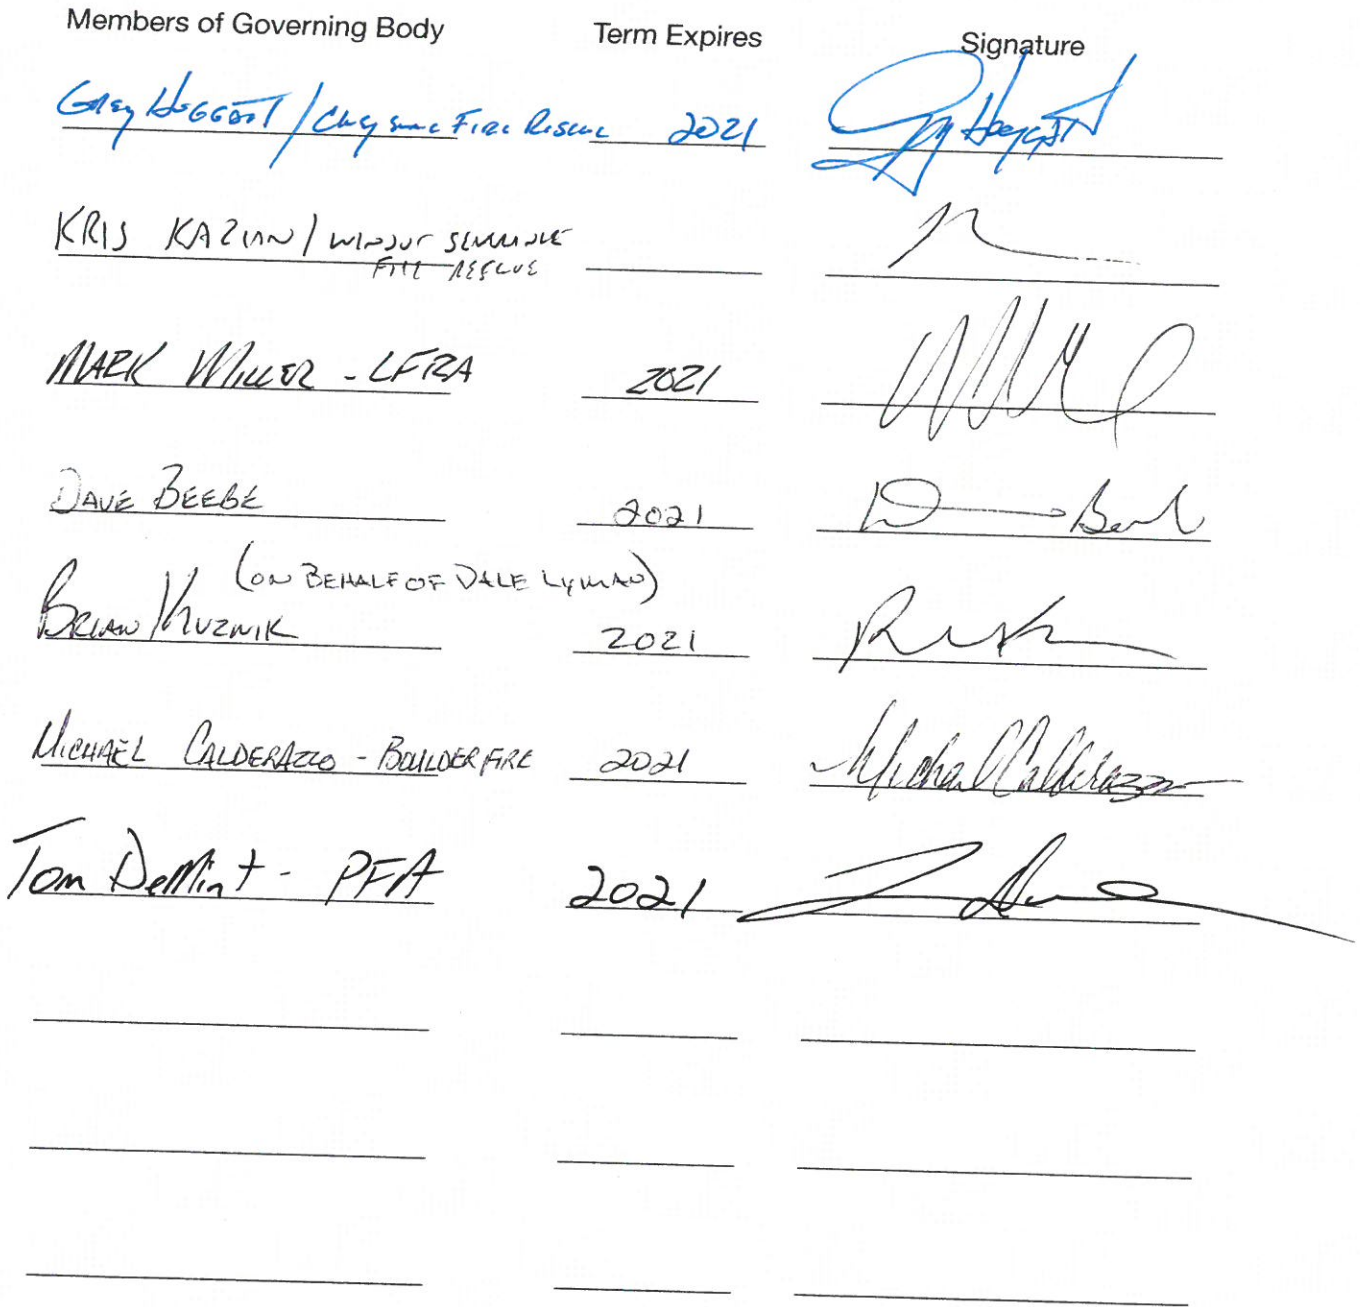 Members of Governing Body Term Expires Signature
Greg Hoggatt / Cheyenne Fire Rescue 2021 Greg Hoggatt
KRIS KAZIAN / WINDSOR SEVERANCE
FIRE RESCUE
MARK MILLER - LFRA 2021
DAVE BEEBE 2021
(ON BEHALF OF DALE LYMAN)
BRIAN KUZNIK 2021
MICHAEL CALDERAZZO - BOULDER FIRE 2021 Michael Calderazzo
Tom DeMint - PFA 2021